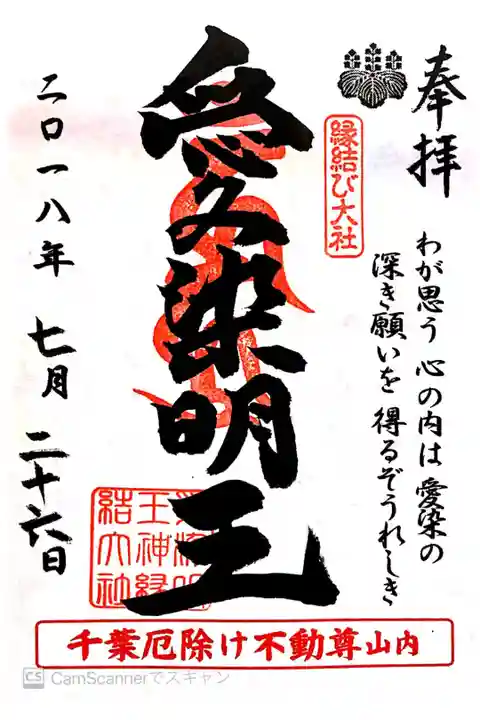 奉拝
縁結び大社
わが思う 心の内は 愛染の
深き願いを 得るぞうれしき
愛染明王
二〇一八年 七月 二十六日
王神縁
結大社
千葉厄除け不動尊山内
CS CamScannerでスキャン